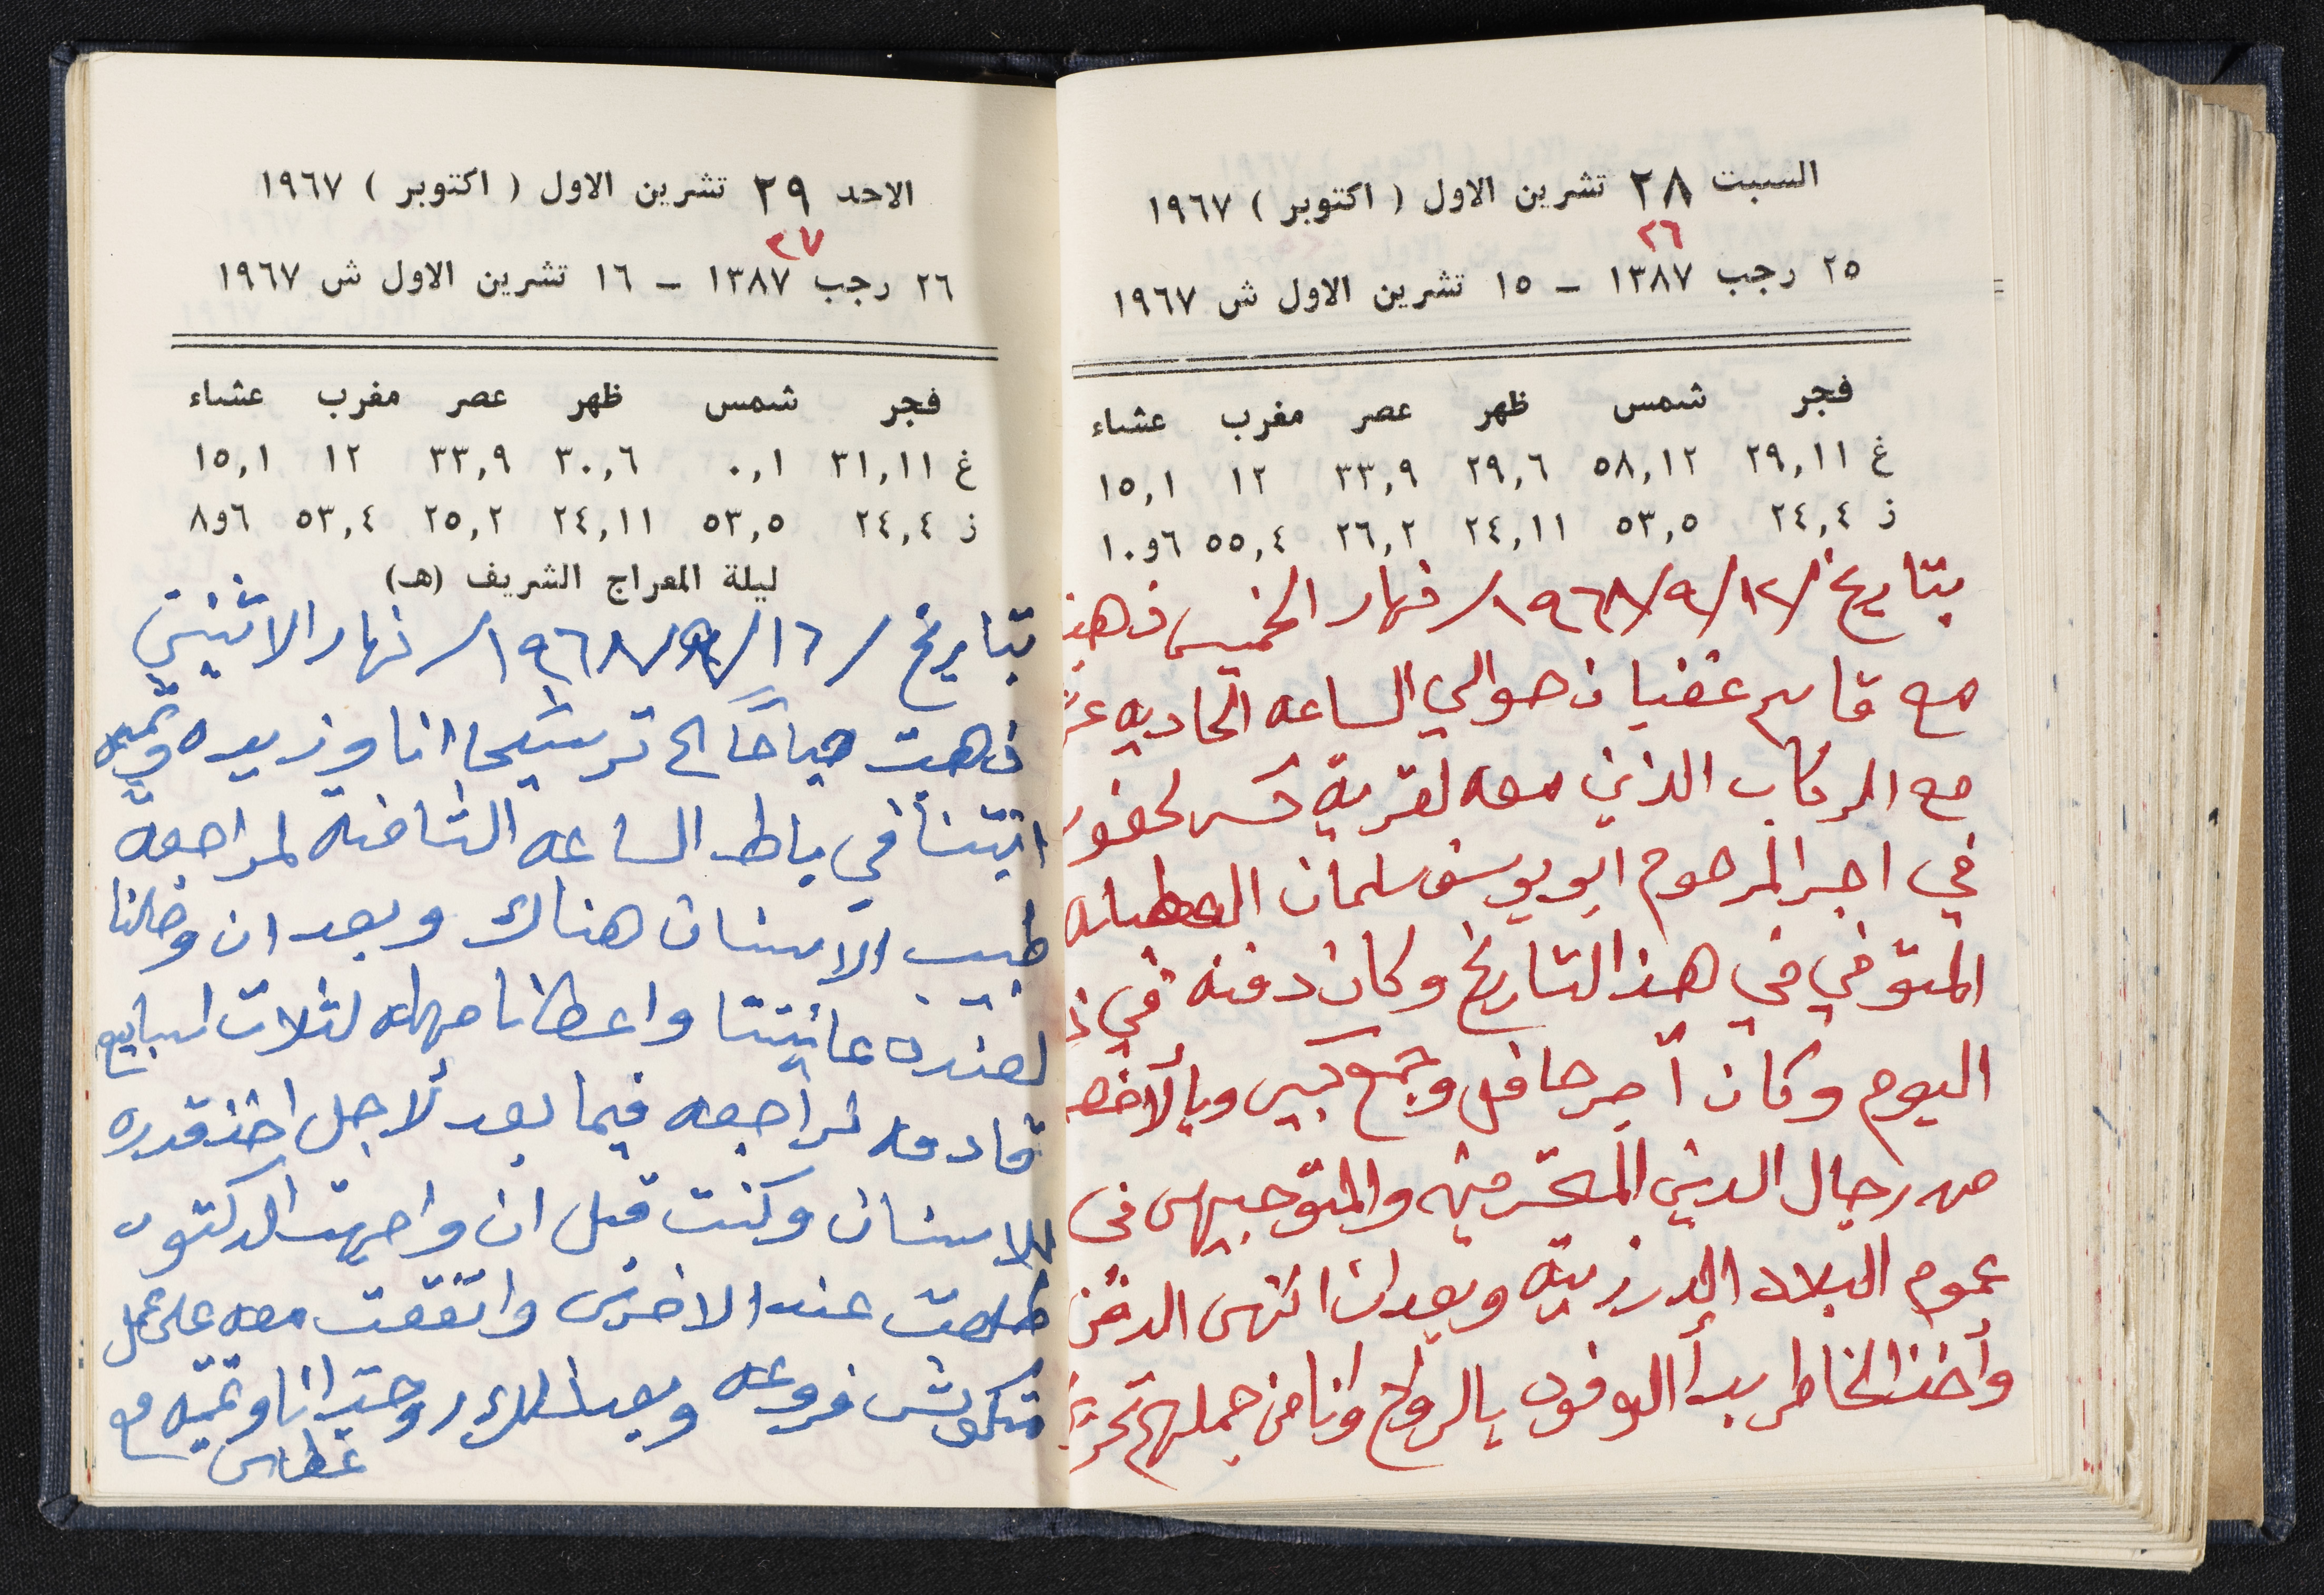 السبت ٢٨ تشرين الاول ( اكتوبر ) ١٩٦٧
٢٦
٢٥ رجب ١٣٨٧ – ١٥ تشرين الاول ش ١٩٦٧
فجر شمس ظهر عصر مغرب عشاء
غ ٢٩,١١ ٥٨,١٢ ٢٩,٦ ٣٣,٩ ١٢ ١٥,١
ز ٢٤,٤ ٥٣,٥ ٢٤,١١ ٢٦,٢ ٥٥,٤ ٦و١٠
بتاريخ /١٢/٩/١٩٦٨/ نهار الخميس ذهبت
مع قاسم غضبان حوالي الساعه الحاديه عشر
مع الركاب الذين معه لقرية لحضور
في اجر المرحوم ابو يوسف سلمان
المتوفي في هذا التاريخ وكان دفنه في
اليوم وكان اجر حافل وجمع كبير وبالاخص
من رجال الدين المحترمين والمتوجبهن في
عموم البلاد الدرزية وبعد ان انتهى الدفن
وأخذ الخاطر بدأ الوفود بالرواح وانا من جملتهم
الاحد ٢٩ تشرين الاول ( اكتوبر ) ١٩٦٧
٢٧
٢٦ رجب ١٣٨٧ – ١٦ تشرين الاول ش ١٩٦٧
فجر شمس ظهر عصر مغرب عشاء
غ ٣١,١١ ٠,١ ٣٠,٦ ٣٣,٩ ١٢ ١٥,١
ز ٢٤,٤ ٥٣,٥ ٢٤,١١ ٢٥,٢ ٥٣,٤ ٦و٨
ليلة المعراج الشريف (هـ)
بتاريخ /١٦/٩/١٩٦٨/ نهار الاثنين
ذهبت صباحًا الى ترشيحا انا وزيده
ابنتنا في باط الساعه الثامنه لمراجعة
طبيب الاسنان هناك وبعد ان وصلنا
لعنده عاينتا واعطانا مهله لثلاث اسابيع
قادمه لمراجعه فيما بعد لاجل اخذ قدره
للاسنان وكنت قبل ان واجهت الدكتور
طلعت عند الاخرس واتفقت معه على عمل
وبعد ذلك روحت انا مع
غطاس